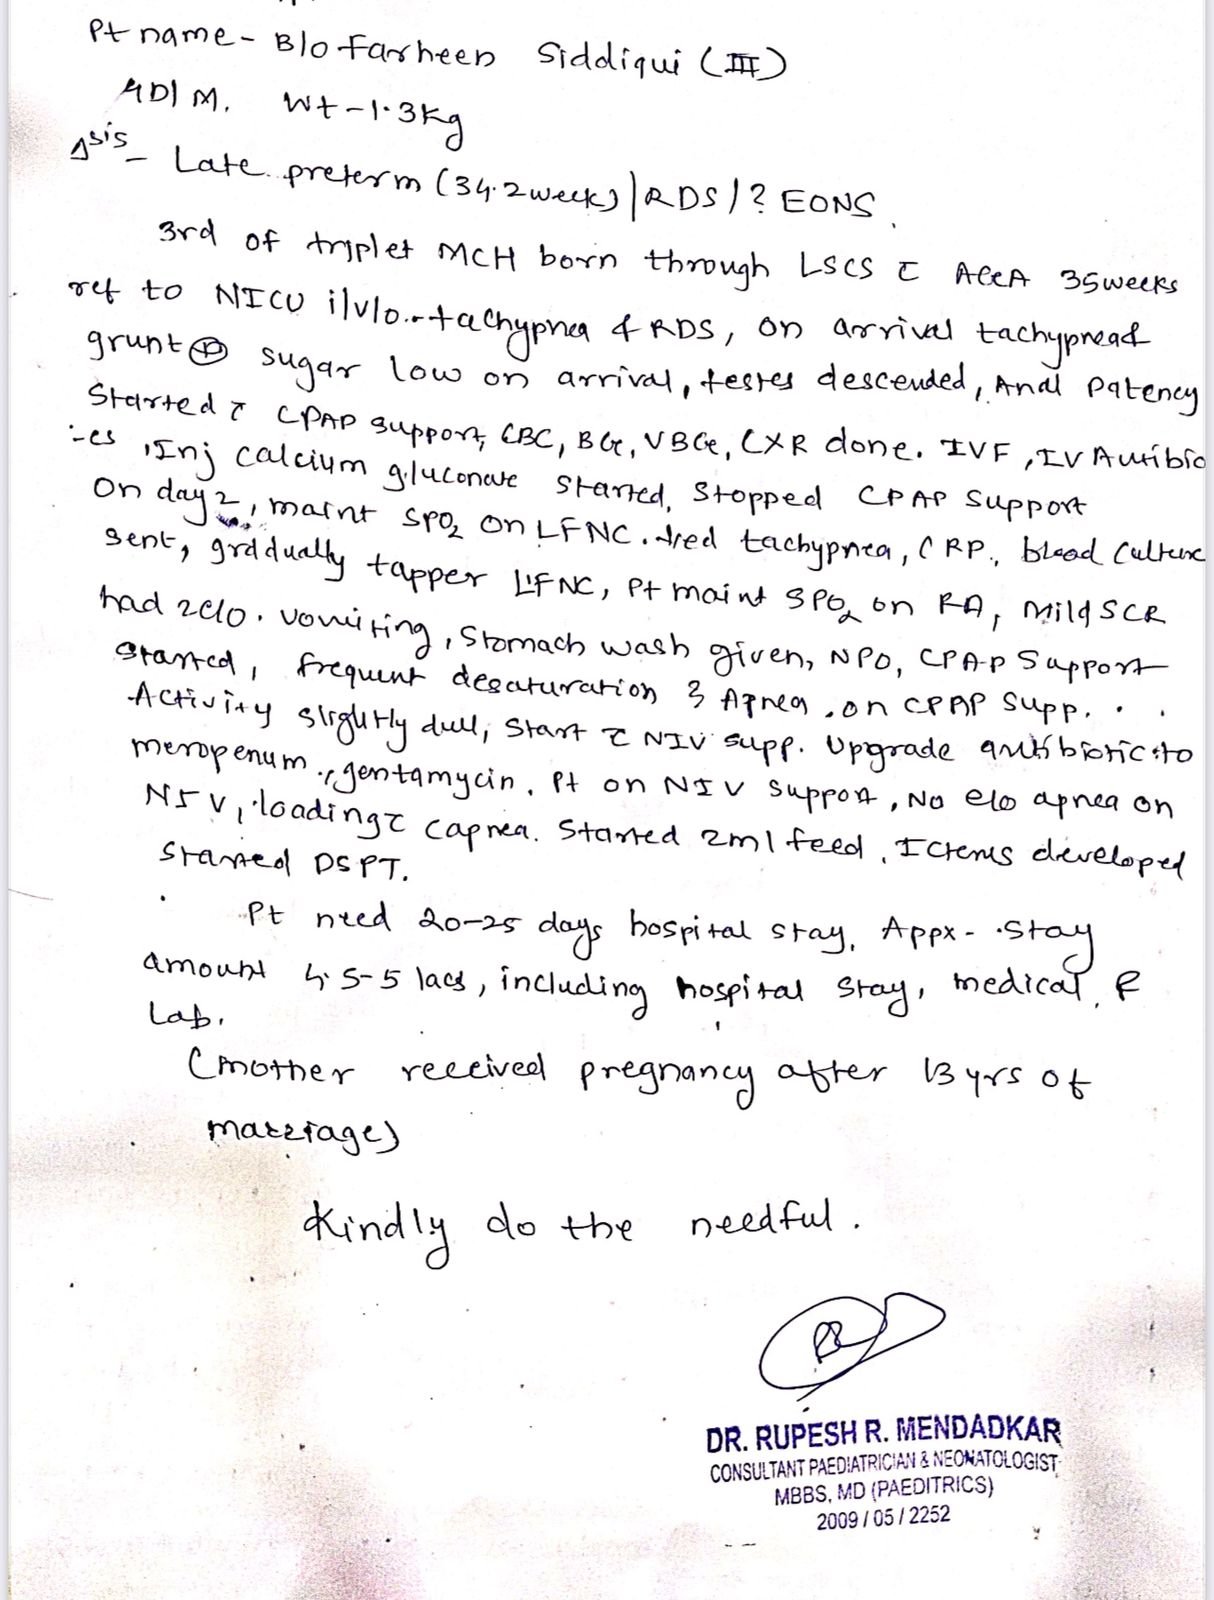 Pt name - B/o Farheen Siddiqui (III)
4D/M. Wt - 1.3kg
Δsis - Late preterm (34.2week)/RDS/? EONS.
3rd of triplet MCH born through LSCS c̄ AGA 35weeks
ref to NICU i/v/o. tachypnea & RDS, on arrival tachypnea
grunt ⊕ sugar low on arrival, testes descended, Anal patency
Started c̄ CPAP support, CBC, BG, VBG, CXR done. IVF, IV Antibio
-cs, Inj calcium gluconate started, Stopped CPAP support
On day 2, maint SPO2 on LFNC. tachypnea, CRP, blood culture
sent, gradually tapper LFNC, Pt maint SPO2 on RA, Mild SCR
had 2 e/o. vomiting, Stomach wash given, NPO, CPAP Support
started, frequent desaturation & Apnea. on CPAP supp.
Activity slightly dull, start c̄ NIV supp. Upgrade antibiotic to
meropenum, gentamycin. Pt on NIV support, No e/o apnea on
NIV, loading c̄ capnea. Started 2ml feed, Icterus developed
started DSPT.
Pt need 20-25 days hospital stay. Appx - Stay
amount 4.5-5 lacs, including hospital stay, medical, &
Lab.
(mother received pregnancy after 13 yrs of
marriage)
Kindly do the needful.
DR. RUPESH R. MENDADKAR
CONSULTANT PAEDIATRICIAN & NEONATOLOGIST
MBBS, MD (PAEDITRICS)
2009 / 05 / 2252